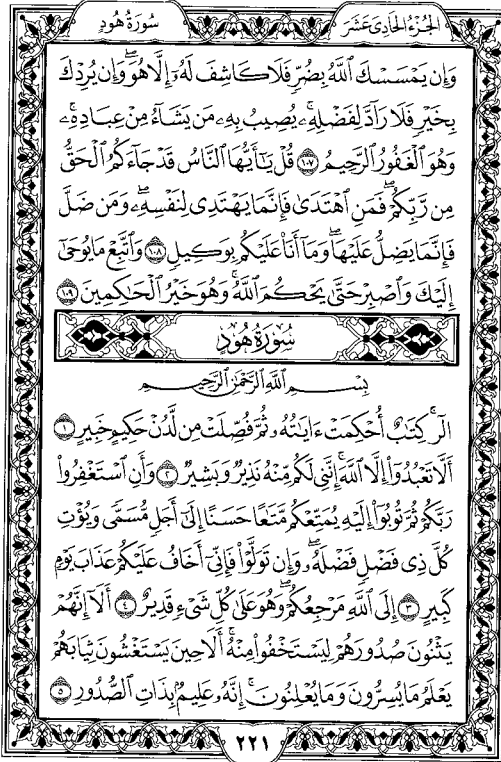 الجزء الحادى عشر
سورة هود
وَإِن يَمْسَسْكَ ٱللَّهُ بِضُرٍّ فَلَا كَاشِفَ لَهُۥٓ إِلَّا هُوَ ۖ وَإِن يُرِدْكَ
بِخَيْرٍ فَلَا رَآدَّ لِفَضْلِهِۦ ۚ يُصِيبُ بِهِۦ مَن يَشَآءُ مِنْ عِبَادِهِۦ ۚ
وَهُوَ ٱلْغَفُورُ ٱلرَّحِيمُ ١٠٧ قُلْ يَـٰٓأَيُّهَا ٱلنَّاسُ قَدْ جَآءَكُمُ ٱلْحَقُّ
مِن رَّبِّكُمْ ۖ فَمَنِ ٱهْتَدَىٰ فَإِنَّمَا يَهْتَدِى لِنَفْسِهِۦ ۖ وَمَن ضَلَّ
فَإِنَّمَا يَضِلُّ عَلَيْهَا ۖ وَمَآ أَنَا۠ عَلَيْكُم بِوَكِيلٍ ١٠٨ وَٱتَّبِعْ مَا يُوحَىٰٓ
إِلَيْكَ وَٱصْبِرْ حَتَّىٰ يَحْكُمَ ٱللَّهُ ۚ وَهُوَ خَيْرُ ٱلْحَـٰكِمِينَ ١٠٩
سُورَةُ هُودٍ
بِسْمِ ٱللَّهِ ٱلرَّحْمَـٰنِ ٱلرَّحِيمِ
الٓر ۚ كِتَـٰبٌ أُحْكِمَتْ ءَايَـٰتُهُۥ ثُمَّ فُصِّلَتْ مِن لَّدُنْ حَكِيمٍ خَبِيرٍ ١
أَلَّا تَعْبُدُوٓا۟ إِلَّا ٱللَّهَ ۚ إِنَّنِى لَكُم مِّنْهُ نَذِيرٌ وَبَشِيرٌ ٢ وَأَنِ ٱسْتَغْفِرُوا۟
رَبَّكُمْ ثُمَّ تُوبُوٓا۟ إِلَيْهِ يُمَتِّعْكُم مَّتَـٰعًا حَسَنًا إِلَىٰٓ أَجَلٍ مُّسَمًّى وَيُؤْتِ
كُلَّ ذِى فَضْلٍ فَضْلَهُۥ ۖ وَإِن تَوَلَّوْا۟ فَإِنِّىٓ أَخَافُ عَلَيْكُمْ عَذَابَ يَوْمٍ
كَبِيرٍ ٣ إِلَى ٱللَّهِ مَرْجِعُكُمْ ۖ وَهُوَ عَلَىٰ كُلِّ شَىْءٍ قَدِيرٌ ٤ أَلَآ إِنَّهُمْ
يَثْنُونَ صُدُورَهُمْ لِيَسْتَخْفُوا۟ مِنْهُ ۚ أَلَا حِينَ يَسْتَغْشُونَ ثِيَابَهُمْ
يَعْلَمُ مَا يُسِرُّونَ وَمَا يُعْلِنُونَ ۚ إِنَّهُۥ عَلِيمٌۢ بِذَاتِ ٱلصُّدُورِ ٥
٢٢١